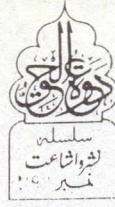 دعوة الحق
سلسلہ
نشر و اشاعت
نمبر